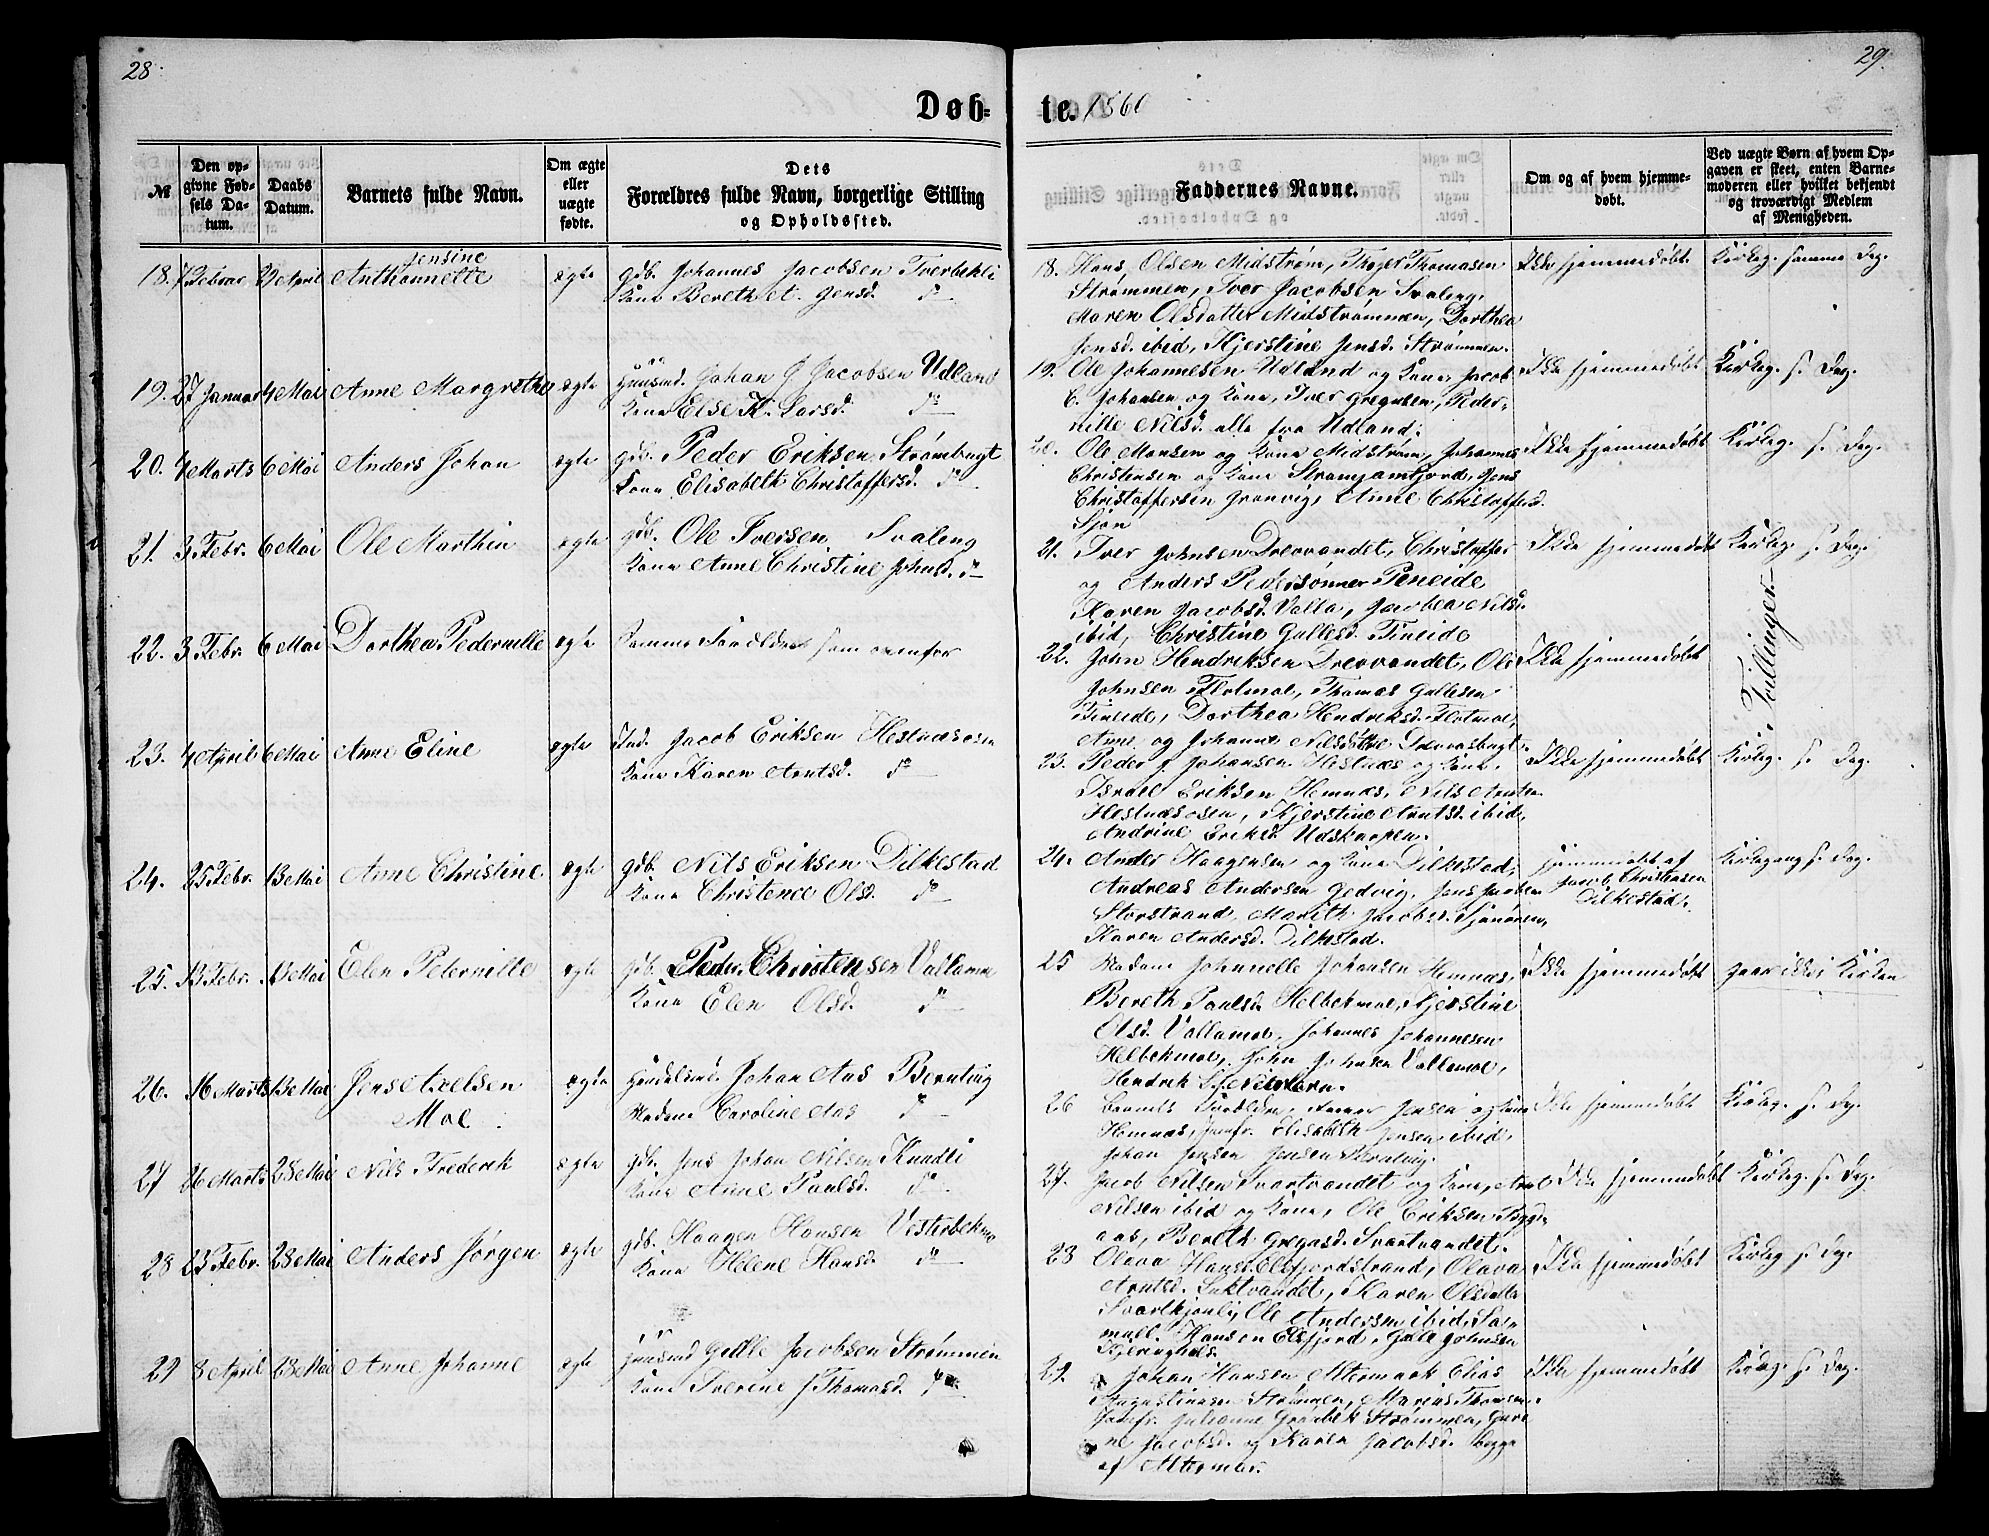 28.
29.
Døb-
te. 1860
№
Den op-
givne Fød-
sels Da-
tum.
Daabs
Datum.
Barnets fulde Navn.
Om ægte
eller
uægte
fødte.
Dets
Forældres fulde Navn, borgerlige Stilling
og Opholdssted.
Faddernes Navne.
Om og af hvem hjemme-
døbt.
Ved uægte Børn af hvem Op-
gaven er skeet, enten Barne-
moderen eller hvilket bekjendt
og troværdigt Medlem
af Menigheden.
Jensine
18. 7 Februar 29 April Anthonnette ægte gdb. Johannes Jacobsen Tverbekli
Kone Bereth et. Jensd. do
18. Hans Olsen Midstrøm, Thoger Thomasen
Strømmen, Iver Jacobsen Svaleng,
Maren Olsdatter Midstrømmen, Dorthea
Jensd. ibid, Kjerstine Jensd. Strømmen.
Ikke hjemmedøbt. Kirkeg. samme Dag.
19. 27 Januar 4 Mai Anne Margrethe ægte Huusmd. Johan J Jacobsen Udland
Kone Else K. Larsd. do
19. Ole Johannesen Udland og Kone, Jacob
C. Johansen og Kone, Iver Gregusen, Peder-
nille Nilsd. alle fra Udland.
Ikke hjemmedøbt Kirkeg. s. Dag.
20. 4 Marts 6 Mai Anders Johan ægte gdb. Peder Eriksen Strømbugt
Kone Elisabeth Christoffersd. do
20. Ole Monsen og Kone Midstrøm, Johannes
Christensen og Kone Strømjamtjord, Jens
Christoffersen Granvig, Anne Christoffersd.
Sjøn
Ikke hjemmedøbt Kirkeg. s. Dag.
21. 3 Febr. 6 Mai Ole Marthin ægte gdb. Ole Iversen Svaleng
Kone Anne Christine Johnsd. do
21. Iver Johnsen Drevvandet, Christoffer
og Anders Pedersønner Fineide
Karen Jacobsd. Valla, Jacobea Nilsd.
ibid, Christine Gullesd. Fineide
Ikke hjemmedøbt Kirkeg. s. Dag.
Tvillinger.
22. 3 Febr. 6 Mai Dorthea Pedernille ægte Samme Forældre som ovenfor
22. John Hendriksen Drevvandet, Ole
Johnsen Flotmoe, Thomas Gullesen
Fineide, Dorthea Hendriksd. Flotmoe,
Anne og Johanne Nilsdøttre Drevvasbugt.
Ikke hjemmedøbt
23. 4 April 6 Mai Anne Eline ægte Ind. Jacob Eriksen Hestnæsosen
Kone Karen Arntsd. do
23. Peder J. Johansen Hestnæs og Kone,
Israel Eriksen Hemnæs, Nils Arntsen
Hestnæsosen, Kjerstine Arntsd. ibid,
Andrine Eriksd. Udskarpen.
Ikke hjemmedøbt Kirkeg. s. Dag.
24. 25 Febr. 13 Mai Anne Christine ægte gdb. Nils Eriksen Dilkestad
Kone Christence Olsd. do
24. Ander Haagensen og Kone Dilkestad,
Andreas Andersen Gedvig, Jens Jacobsen
Storstrand, Marith Jacobsd. Sjønøren,
Karen Andersd. Dilkestad.
hjemmedøbt af
Jacob Christensen
Dilkestad.
Kirkegang s. Dag.
25. 13 Febr. 13 Mai Elen Peternille ægte gdb. Peder Christensen Vallamoe
Kone Elen Olsd. do
25 Madame Johnnelle Johansen Hemnæs,
Bereth Paulsd. Helbekmoe, Kjerstine
Olsd. Vallamoe, Johannes Johannesen
Helbekmoe, John Johnsen Vallamoe,
Hendrik
Ikke hjemmedøbt gaar ikke i Kirken
26. 16 Marts 13 Mai Jens Axelsen
Moe
ægte Handelsmd. Johan Aas Bernting
Madame Caroline Aas do
26 Barnets Forældre, Jensen og Kone
Hemnæs, Jomfr. Elisabeth Jensen ibid,
Johan Jensen Jensen Bernting.
Ikke hjemmedøbt Kirkeg. s. Dag.
27 26 Marts 28 Mai Nils Frederik ægte gdb. Jens Johan Nilsen Knadli
Kone Anne Paulsd. do
27. Jacob Nilsen Svartvandet og Kone, Arnt
Nilsen ibid og Kone, Ole Eriksen Bygde-
aas, Bereth Gregusd. Svartvandet.
Ikke hjemmedøbt Kirkeg. s. Dag.
28 23 Febr. 28 Mai Anders Jørgen ægte gdb. Haagen Hansen Vesterbekmoe
Kone Helene Hansd. do
28 Olava Hansd. Elsfjordstrand, Olava
Arntsd. Luktvandet, Karen Olsdatter
Svartkjønli, Ole Andersen ibid, Sa-
muel Hansen Elsfjord, Gulle Johnsen
Ikke hjemmedøbt Kirkeg s. Dag.
29 8 April 28 Mai Anne Johanne ægte Huusmd Gulle Jacobsen Strømmen
Kone Severine J Thomasd. do
29. Johan Hansen Altermark Elias
Augustinusen Strømmen, Marius Thomsen,
Jomfr. Julianne Grønbek Strømmen, Gure-
ne Jacobsd. og Karen Jacobsd. begge
af Altermark.
Ikke hjemmedøbt Kirkeg. s. Dag.